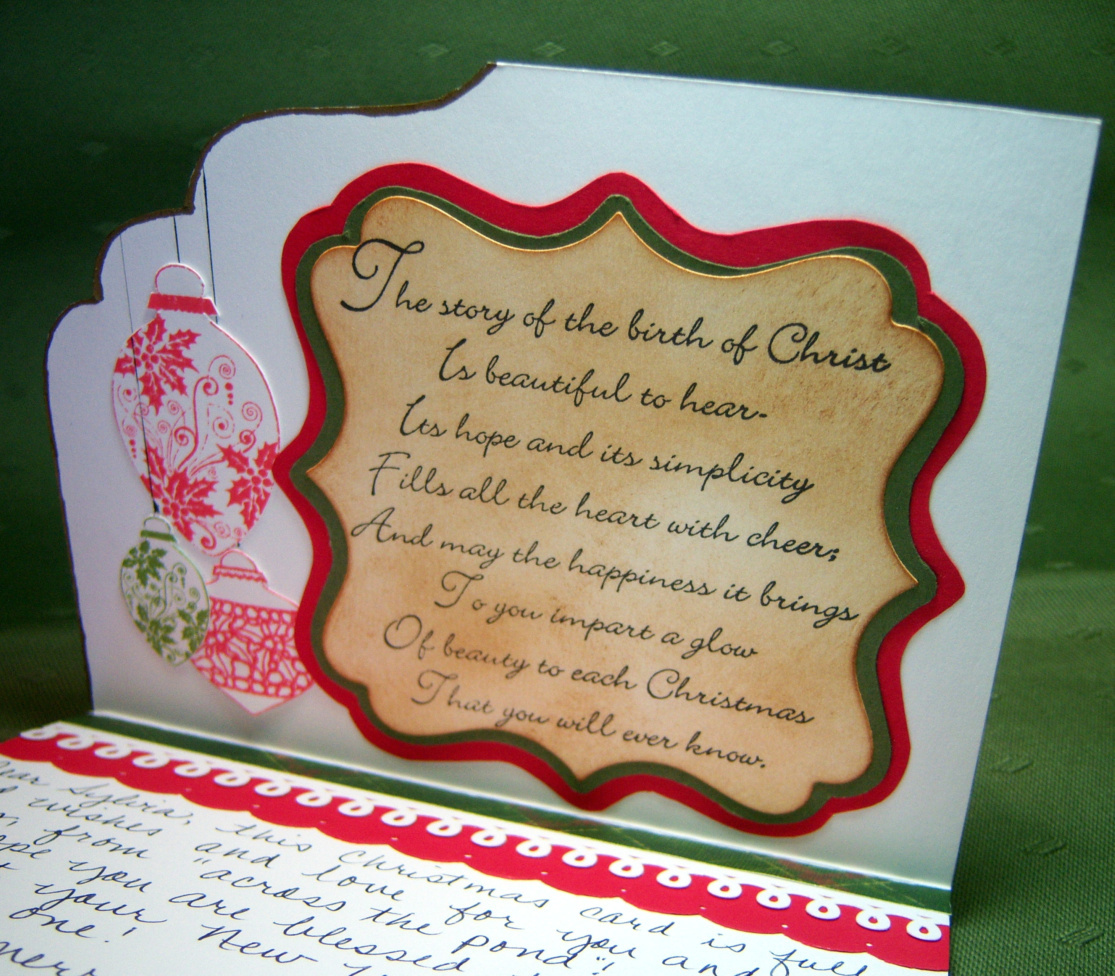 The story of the birth of Christ
Is beautiful to hear-
Its hope and its simplicity
Fills all the heart with cheer;
And may the happiness it brings
To you impart a glow
Of beauty to each Christmas
That you will ever know.
Dear Sylvia, this Christmas card is full
wishes and love for you and
from "across the pond"!
you are blessed
your New
one!